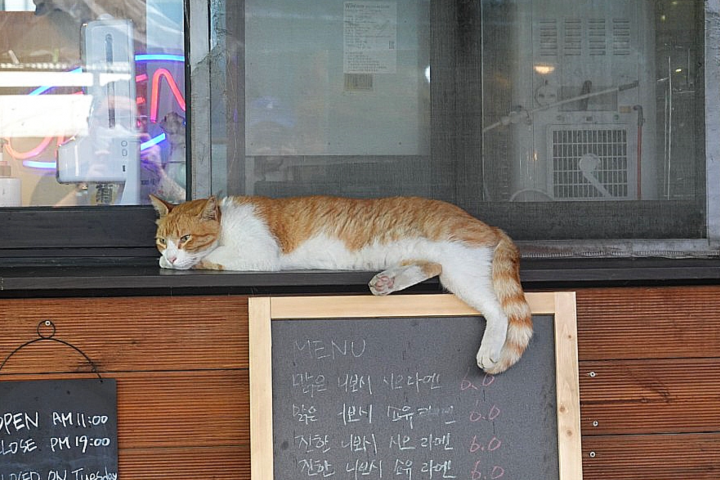 OPEN
MENU
맑은 니보시 시오라멘 6.0
맑은 니보시 쇼유라멘 6.0
진한 니보시 시오라멘 6.0
진한 니보시 쇼유라멘 6.0
OPEN AM 11:00
CLOSE PM 19:00
CLOSED ON Tuesday